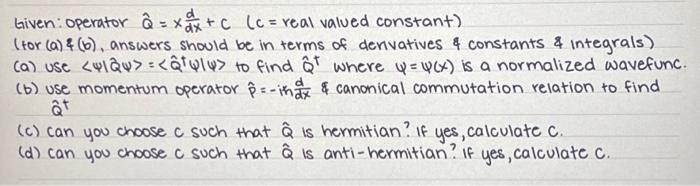 Given: operator Q̂ = x d/dx + c (c = real valued constant)
(for (a) & (b), answers should be in terms of derivatives & constants & integrals)
(a) use <ψ|Q̂ψ> = <Q̂†ψ|ψ> to find Q̂† where ψ = ψ(x) is a normalized wavefunc.
(b) use momentum operator p̂ = -iħ d/dx & canonical commutation relation to find
Q̂†
(c) can you choose c such that Q̂ is hermitian? If yes, calculate c.
(d) can you choose c such that Q̂ is anti-hermitian? If yes, calculate c.